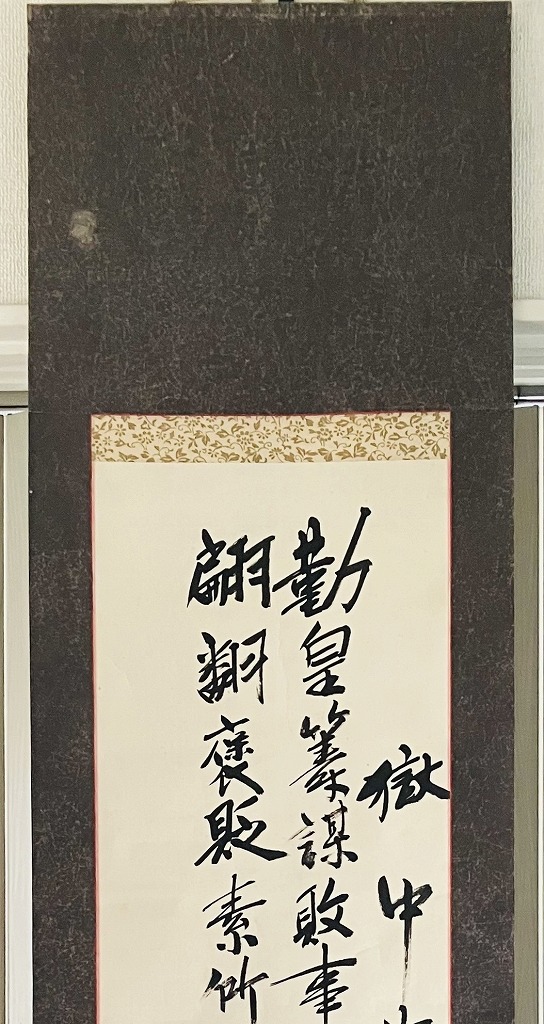 獄中
勤皇策謀敗事
翩翻褒貶素所